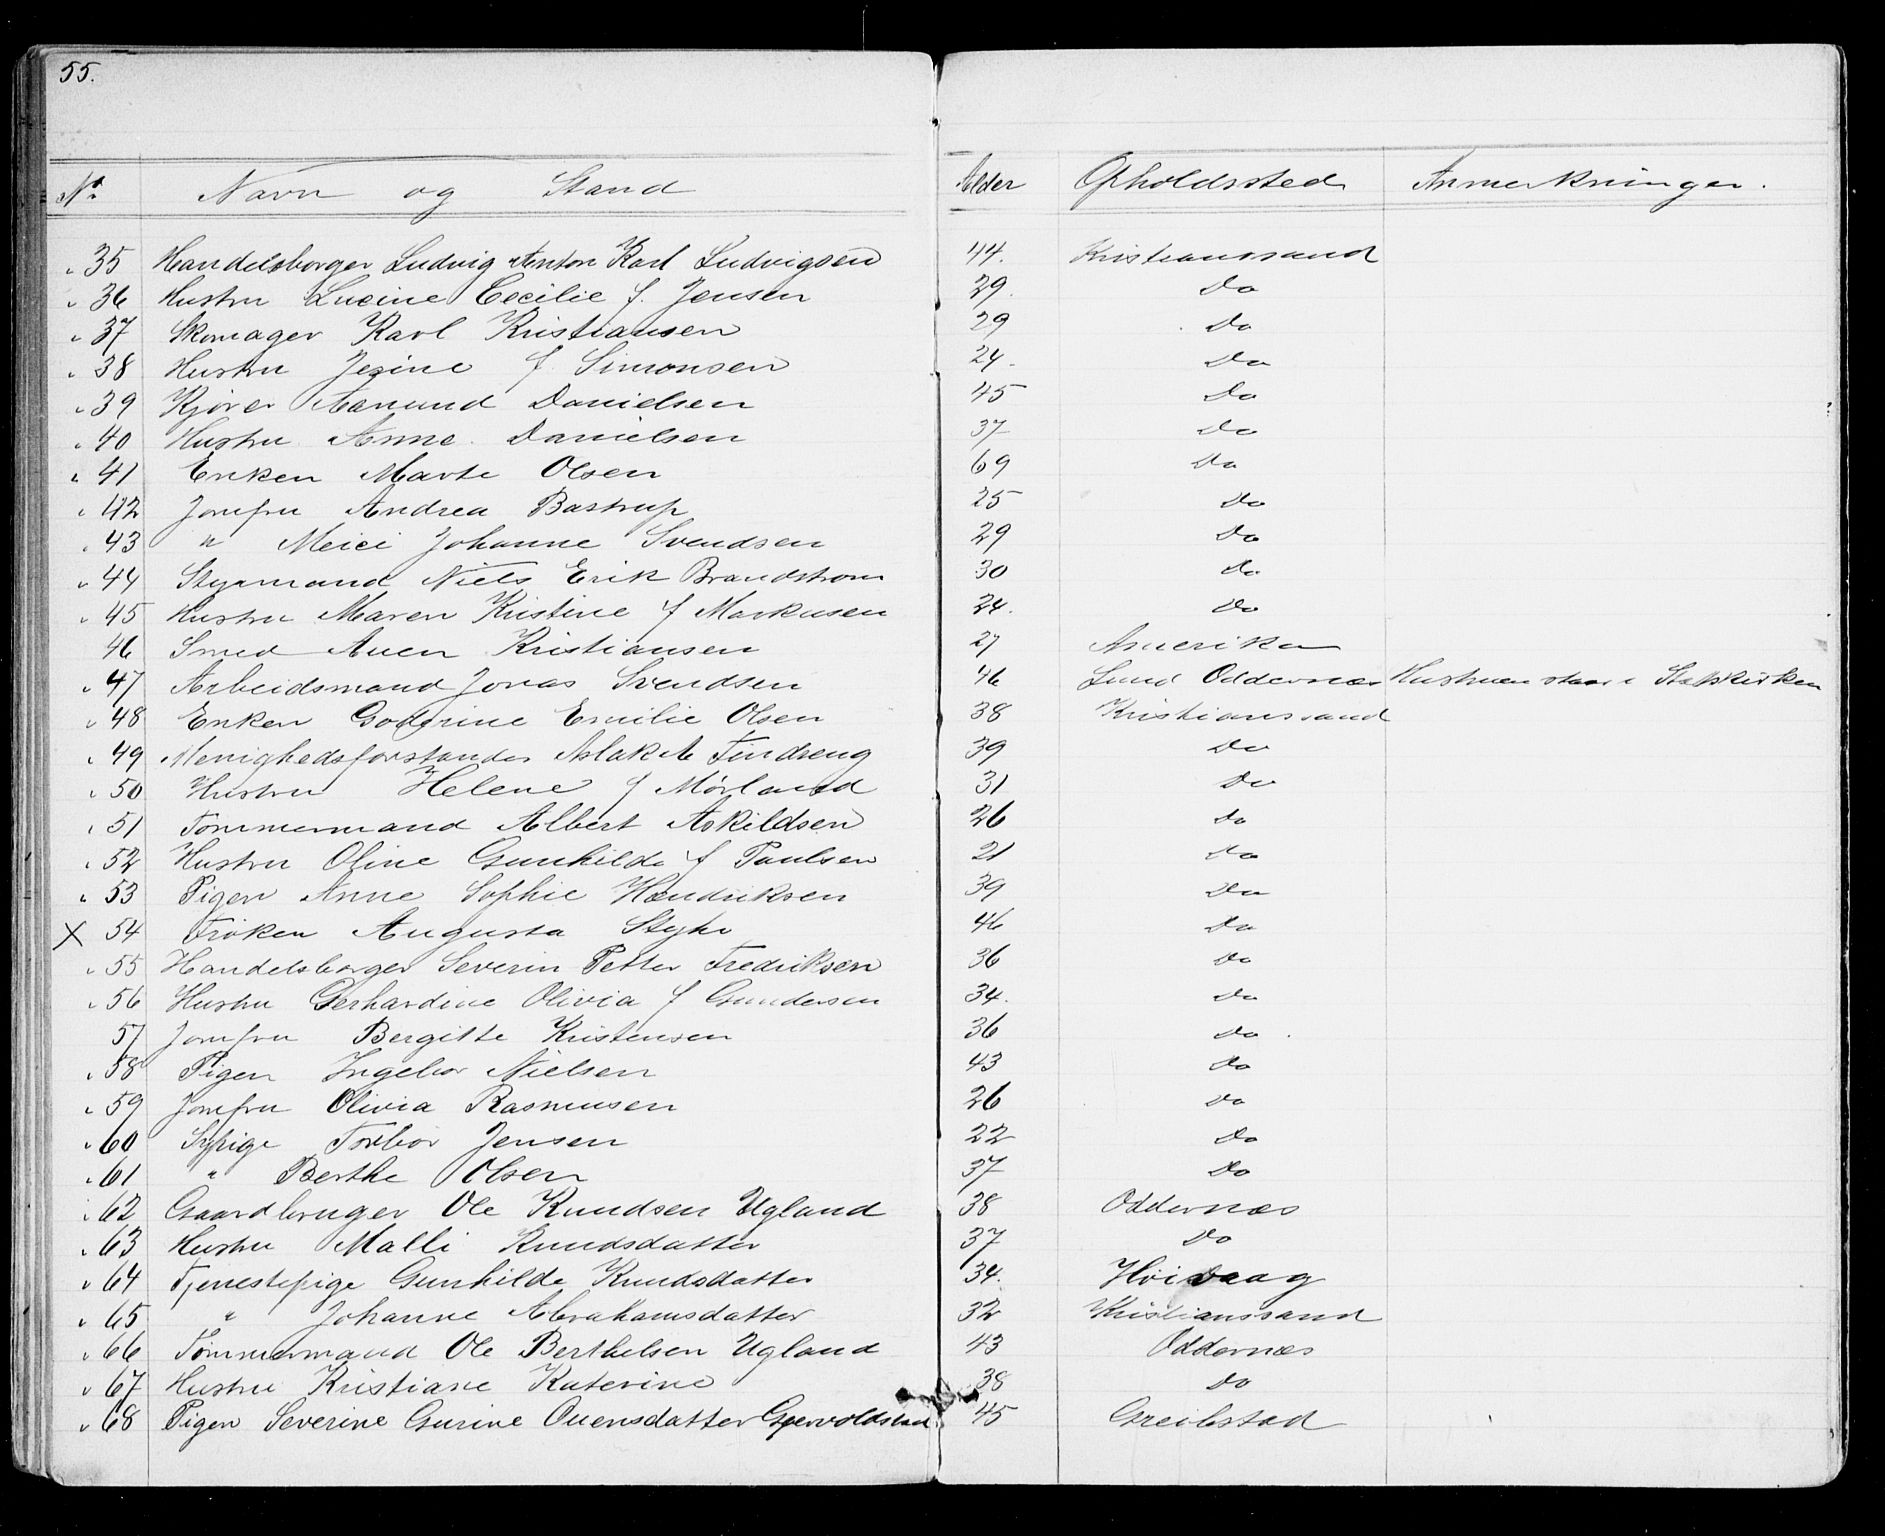 55.
No. Navn og Stand Alder Opholdssted Anmerkninger.
35 Handelsborger Ludvig Anton Karl Ludvigsen 44. Kristianssand
36 Hustru Lucine Cecilie f. Jensen 29. Do
37 Skomager Karl Kristiansen 29 Do
38 Hustru Jesine f Simonsen 24. Do
39 Kjører Aanund Danielsen 45 Do
40 Hustru Anne. Danielsen 37 Do
41 Enken Marte Olsen 69 Do
42 Jomfru Andrea Bastrup 25 Do
43 " Meici Johanne Svendsen 29 Do
44 Styrmand Niels Erik Brandstrom 30 Do
45 Hustru Maren Kristine f Markusen 24. Do
46 Smed Auen Kristiansen 27 Amerika
47 Arbeidsmand Jonas Svendsen 46 Lund Oddernæs Hustruen staar i Statskirken
48 Enken Godrine Emilie Olsen 38 Kristianssand
49 Menighedsforstander Aslak A Findreng 39 Do
50 Hustru Helene f Mørland 31 Do
51 Tømmermand Albert Askildsen 26 Do
52 Hustru Oline Gunhilde f Paulsen 21 Do
53 Pigen Anne Sophie Hendriksen 39 Do
X 54 Frøken Augusta Styhr 46 Do
55 Handelsborger Severin Petter Fredriksen 36 Do
56 Hustru Gerhardine Olivia f Gundersen 34. Do
57 Jomfru Bergitte Kristensen 36 Do.
58 Pigen Ingebor Nielsen 43 Do
59 Jomfru Olivia Rasmusen 26 Do
60 Sypige Torbor Jensen 22 Do
61 " Berthe Olsen 37 Do
62 Gaardbruger Ole Knudsen Ugland 38 Oddernæs
63 Hustru Malli Knudsdatter 37 Do
64 Tjenestepige Gunhilde Knudsdatter 34. Høivaag
65 " Johanne Abrahamsdatter 32 Kristianssand
66 Tømmermand Ole Berthelsen Ugland 43 Oddernæs
67 Hustru Kristiane Katerine 38 Do
68 Pigen Severine Gurine Ouensdatter Gjervoldstad 45 Greibstad